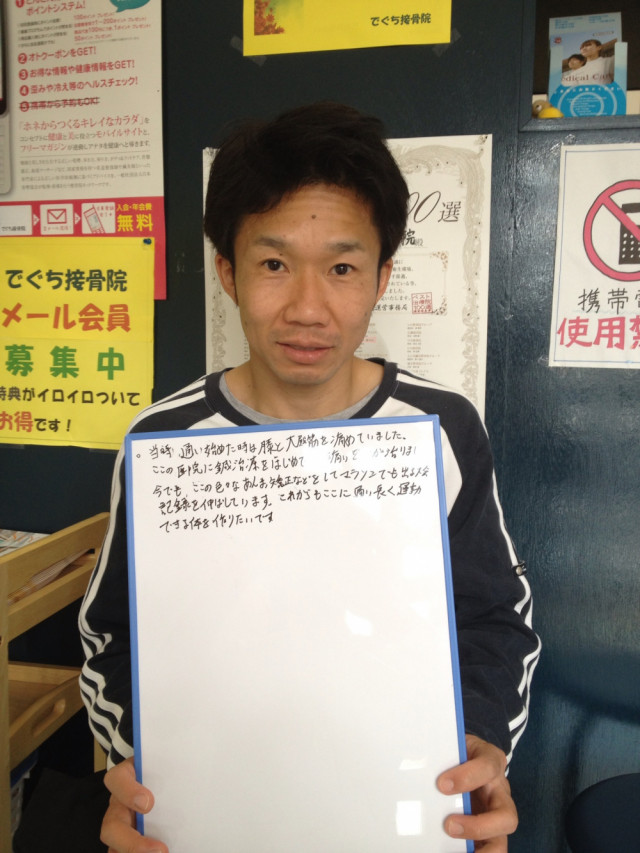 ポイントシステム!
❷オトクーポンをGET!
❸お得な情報や健康情報をGET!
❹歪みや冷え等のヘルスチェック!
❺携帯から予約もOK!
「ホネからつくるキレイなカラダ」を
コンセプトに健康と美に役立つモバイルサイトと、
フリーマガジンが連動しアナタを健康へと導きます。
入会・年会費
無料
でぐち接骨院
メール会員
募集中
特典がイロイロついて
お得です!
でぐち接骨院
edical Ca
00選
院殿
運営事務局
携帯電
使用禁
当時 通い始めた時は膝と大殿筋を痛めていました。
この医院に鍼治療をはじめて 痛い
今でも この色々なあんま矯正などをしてマラソンでも出る大会
記録を伸ばしています。これからもここに通い長く運動
できる体を作りたいです